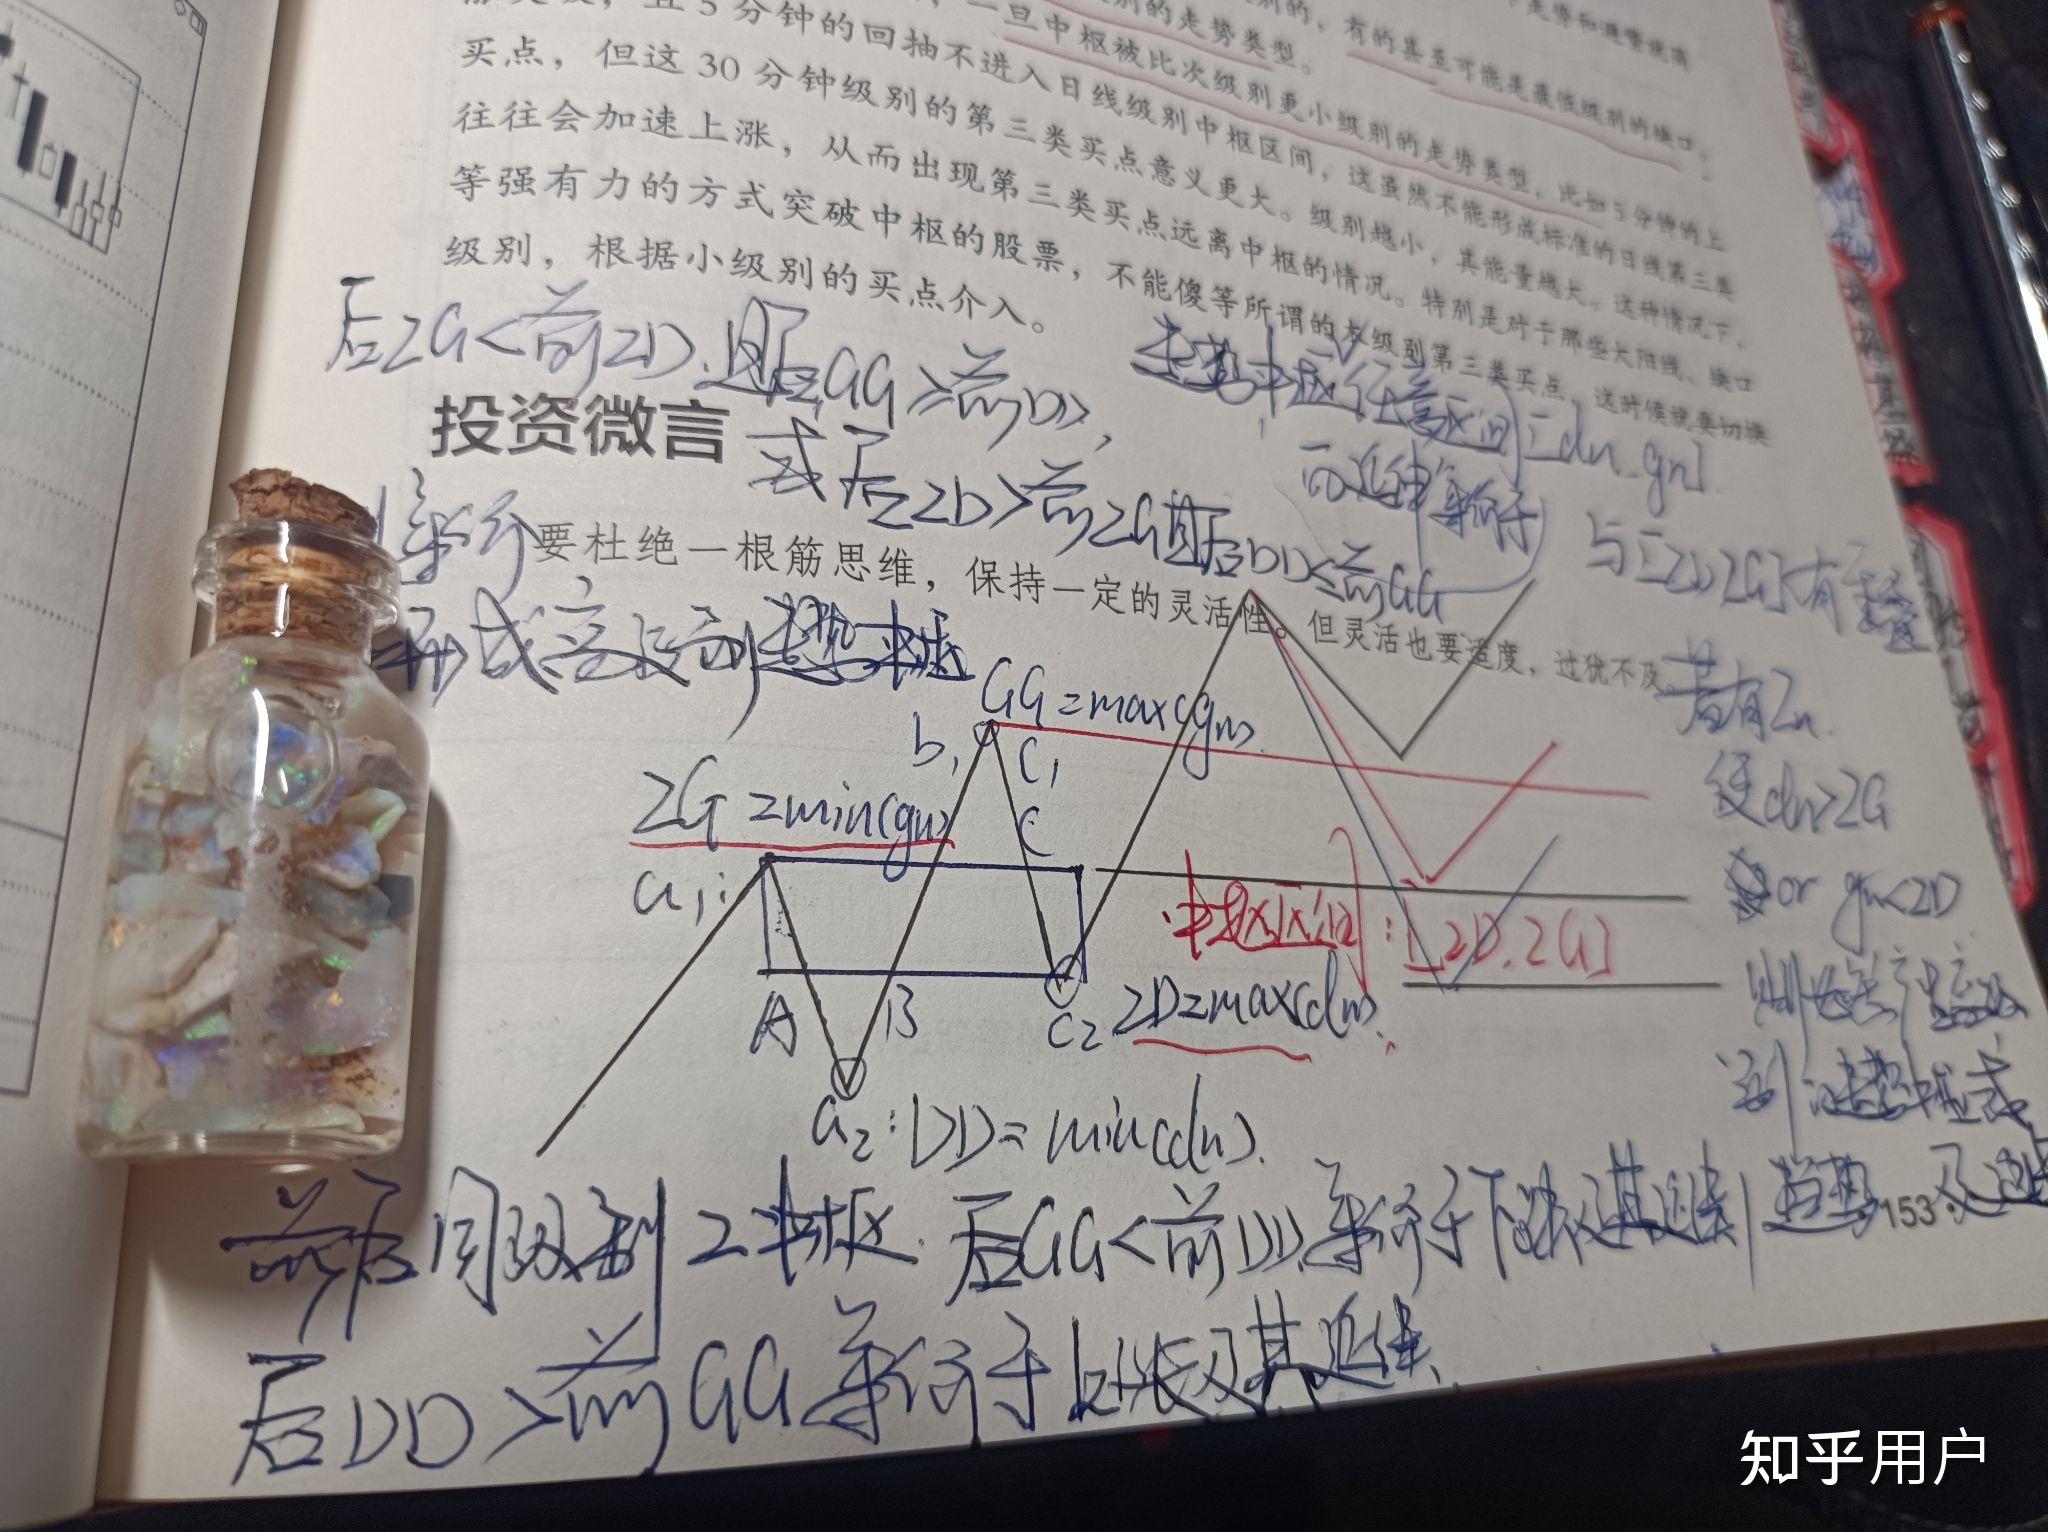 走势和通常说需
别的走势类型。
别的，有的甚至可能是最低级别的缺口。
一旦中枢被比次级别更小级别的走势类型，比如5分钟的上
且5分钟的回抽不进入日线级别中枢区间，这虽然不能形成标准的日线第三类
买点，但这30分钟级别的第三类买点意义更大。级别越小，其能量越大。这种情况下，
往往会加速上涨，从而出现第三类买点远离中枢的情况。特别是对于那些大阳线、缺口
等强有力的方式突破中枢的股票，不能傻等所谓的本级别第三类买点，这时候就要切换
级别，根据小级别的买点介入。
后ZG<前ZD,且后GG≥前DD,
或后ZD>前ZG且后DD≤前GG
等价
形成高级别走势中枢
投资微言
要杜绝一根筋思维，保持一定的灵活性。但灵活也要适度，过犹不及
走势中枢任意区间[dn,gn]
而延伸等价于
与[ZD,ZG]有重叠
若有Zn
使dn>ZG
or gn<ZD
GG=max(gn)
b1
C1
ZG=min(gn)
C
a1:
中枢区间:[ZD,ZG]
A
B
C2
ZD=max(dn)
a2:DD=min(dn)
前后同级别2中枢 后GG<前DD,等价于下跌及其延续
后DD>前GG等价于上涨及其延续
153
知乎用户